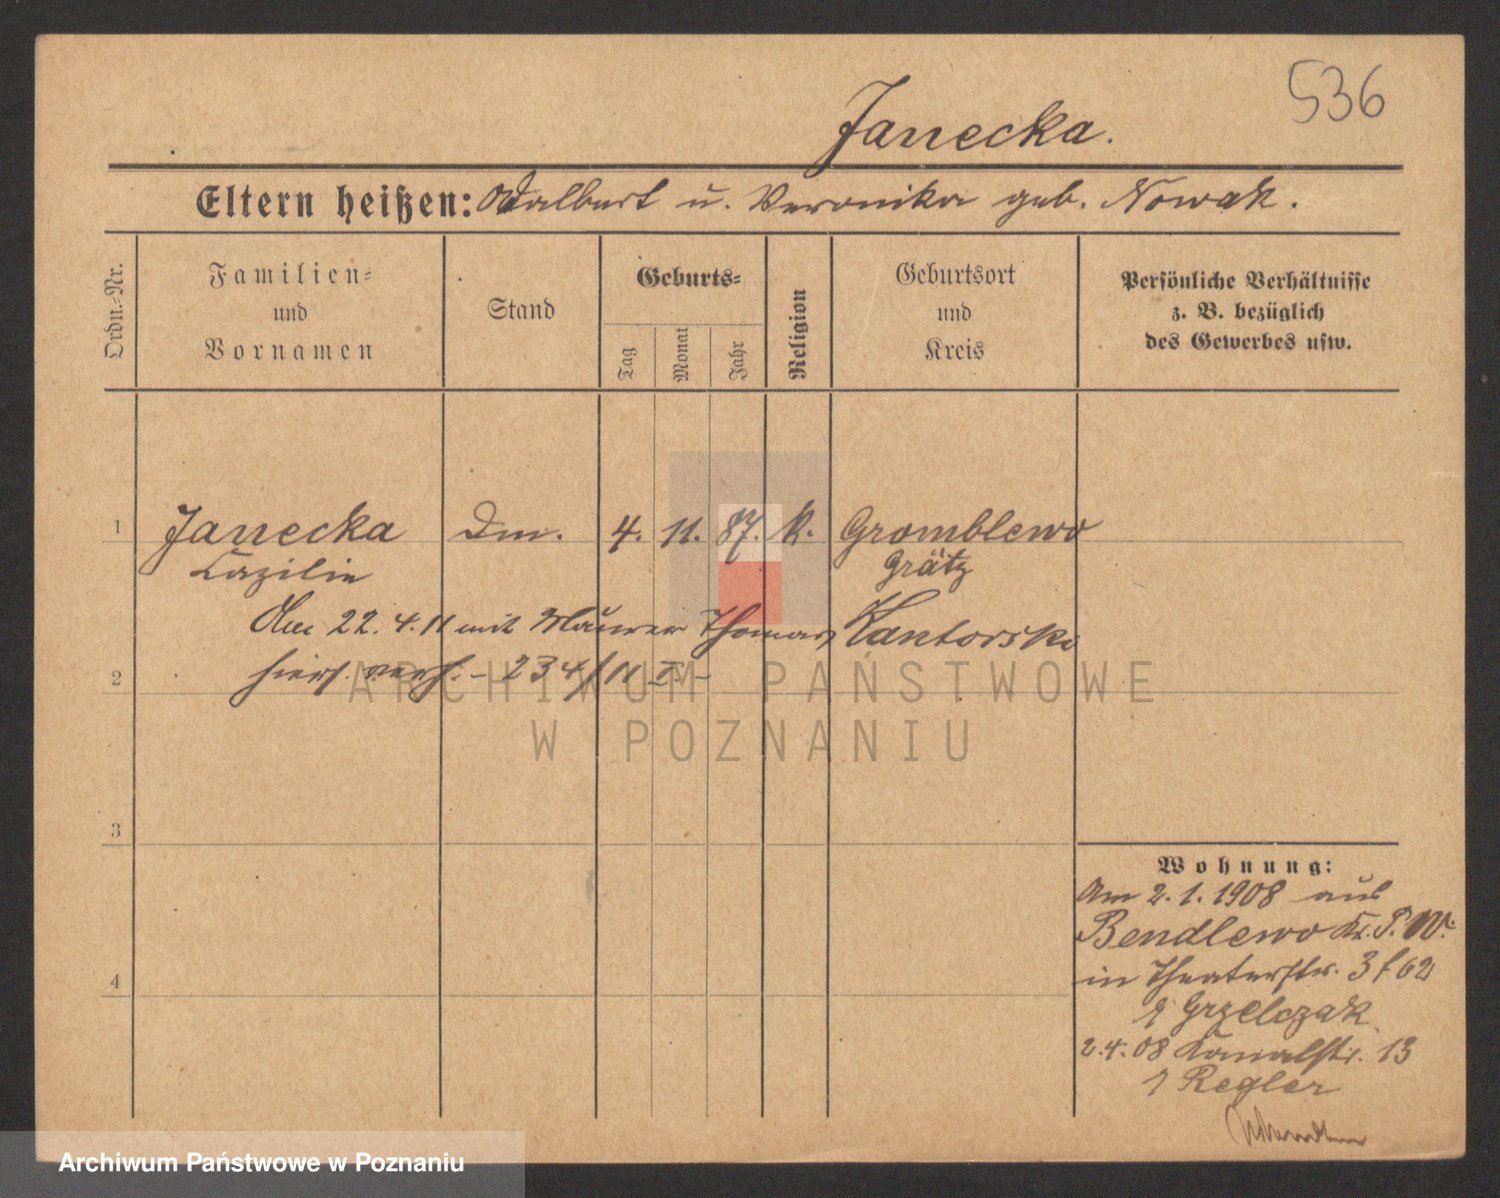 536
Janecka.
Eltern heißen: Adalbert u. Veronika geb. Nowak.
Ordn.-Nr.
Familien- und Vornamen
Stand
Geburts-
Tag
Monat
Jahr
Religion
Geburtsort und Kreis
Persönliche Verhältnisse z. B. bezüglich des Gewerbes usw.
1 Janecka Dm. 4. 11. 87. k. Gromblewo
Cäzilie Grätz
Am 22. 4. 11 mit Maurer Thomas Kantorski
hiers. verh. - 234/11 I. -
2
3
4
Wohnung:
Am 2. 1. 1908 aus
Bendlewo Kr. P. W.
in Theaterstr. 3 f 62
Grzelczak
2.4.08 Kanalstr. 13
Regler
ARCHIWUM PAŃSTWOWE
W POZNANIU
Archiwum Państwowe w Poznaniu